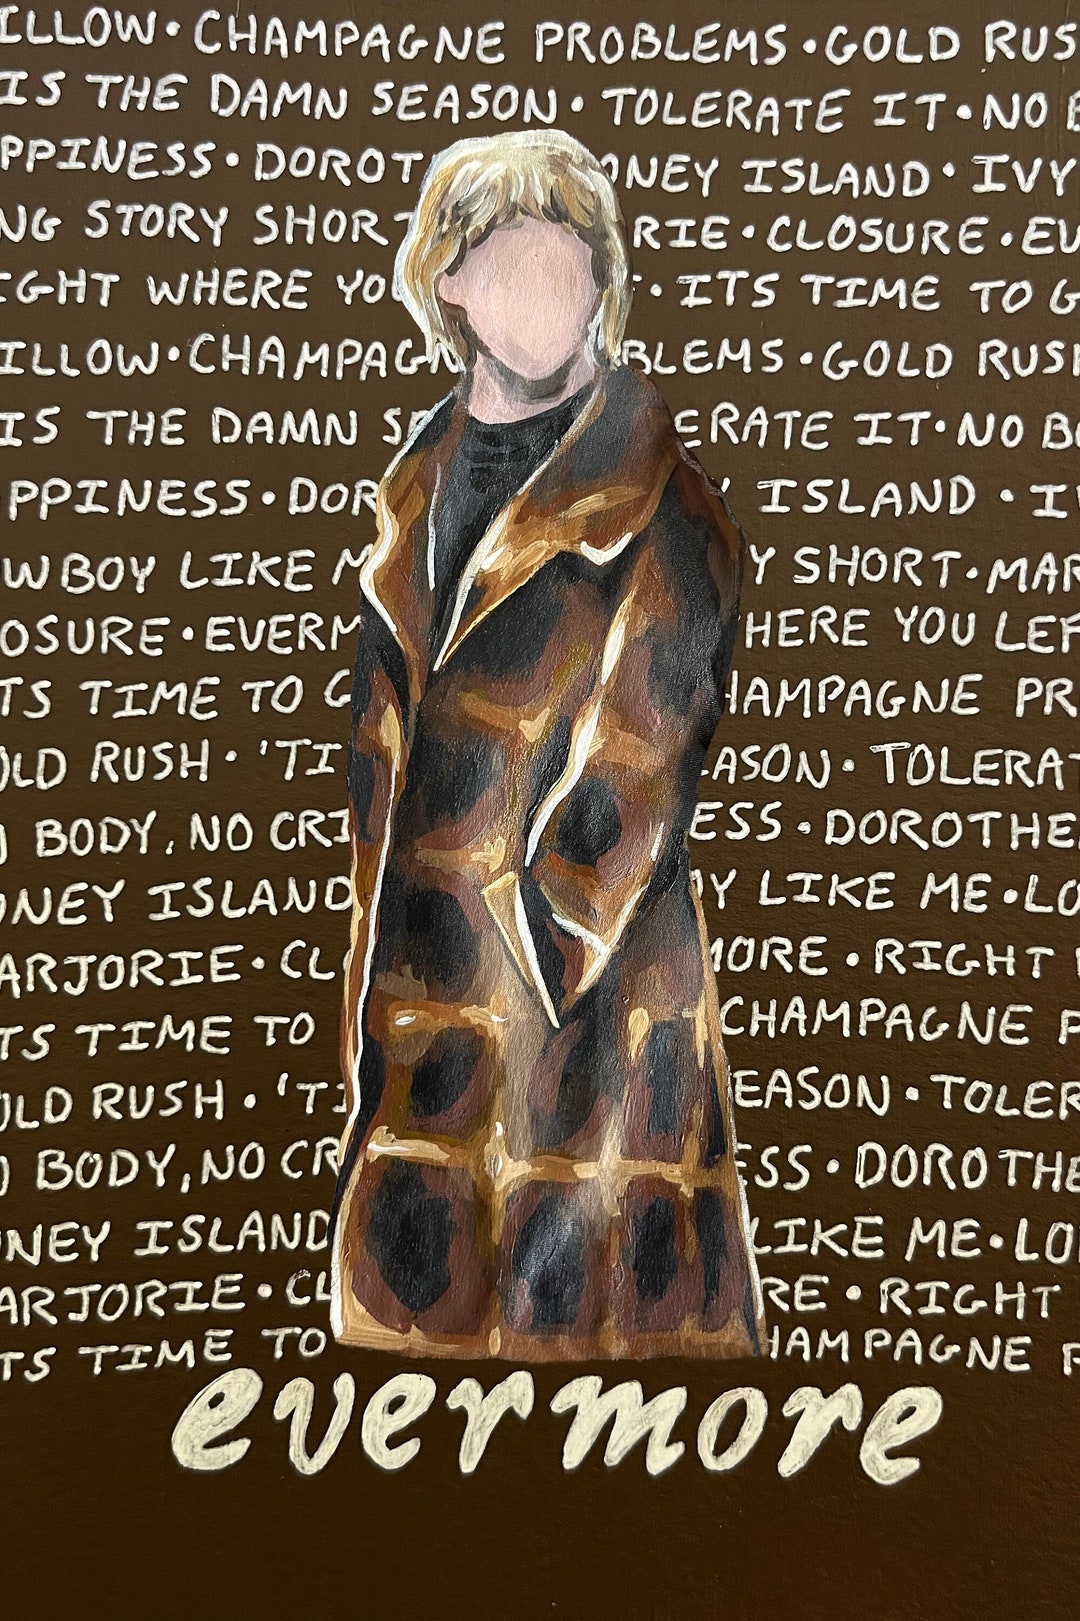 ILLOW • CHAMPAGNE PROBLEMS • GOLD RUS
IS THE DAMN SEASON • TOLERATE IT • NO B
PPINESS • DOROT ONEY ISLAND • IVY
NG STORY SHORT RIE • CLOSURE • EV
IGHT WHERE YOU • ITS TIME TO G
ILLOW • CHAMPAGN BLEMS • GOLD RUSH
IS THE DAMN SE ERATE IT • NO BO
PPINESS • DOR Y ISLAND • I
OWBOY LIKE M Y SHORT • MAR
OSURE • EVERM HERE YOU LEF
TS TIME TO G HAMPAGNE PR
OLD RUSH • 'TI EASON • TOLERAT
O BODY, NO CRI ESS • DOROTHE
ONEY ISLAND OY LIKE ME • LO
ARJORIE • CLO MORE • RIGHT
TS TIME TO CHAMPAGNE P
OLD RUSH • 'TI EASON • TOLER
O BODY, NO CR ESS • DOROTHE
ONEY ISLAND LIKE ME • LO
ARJORIE • CL RE • RIGHT
TS TIME TO HAMPAGNE P
evermore